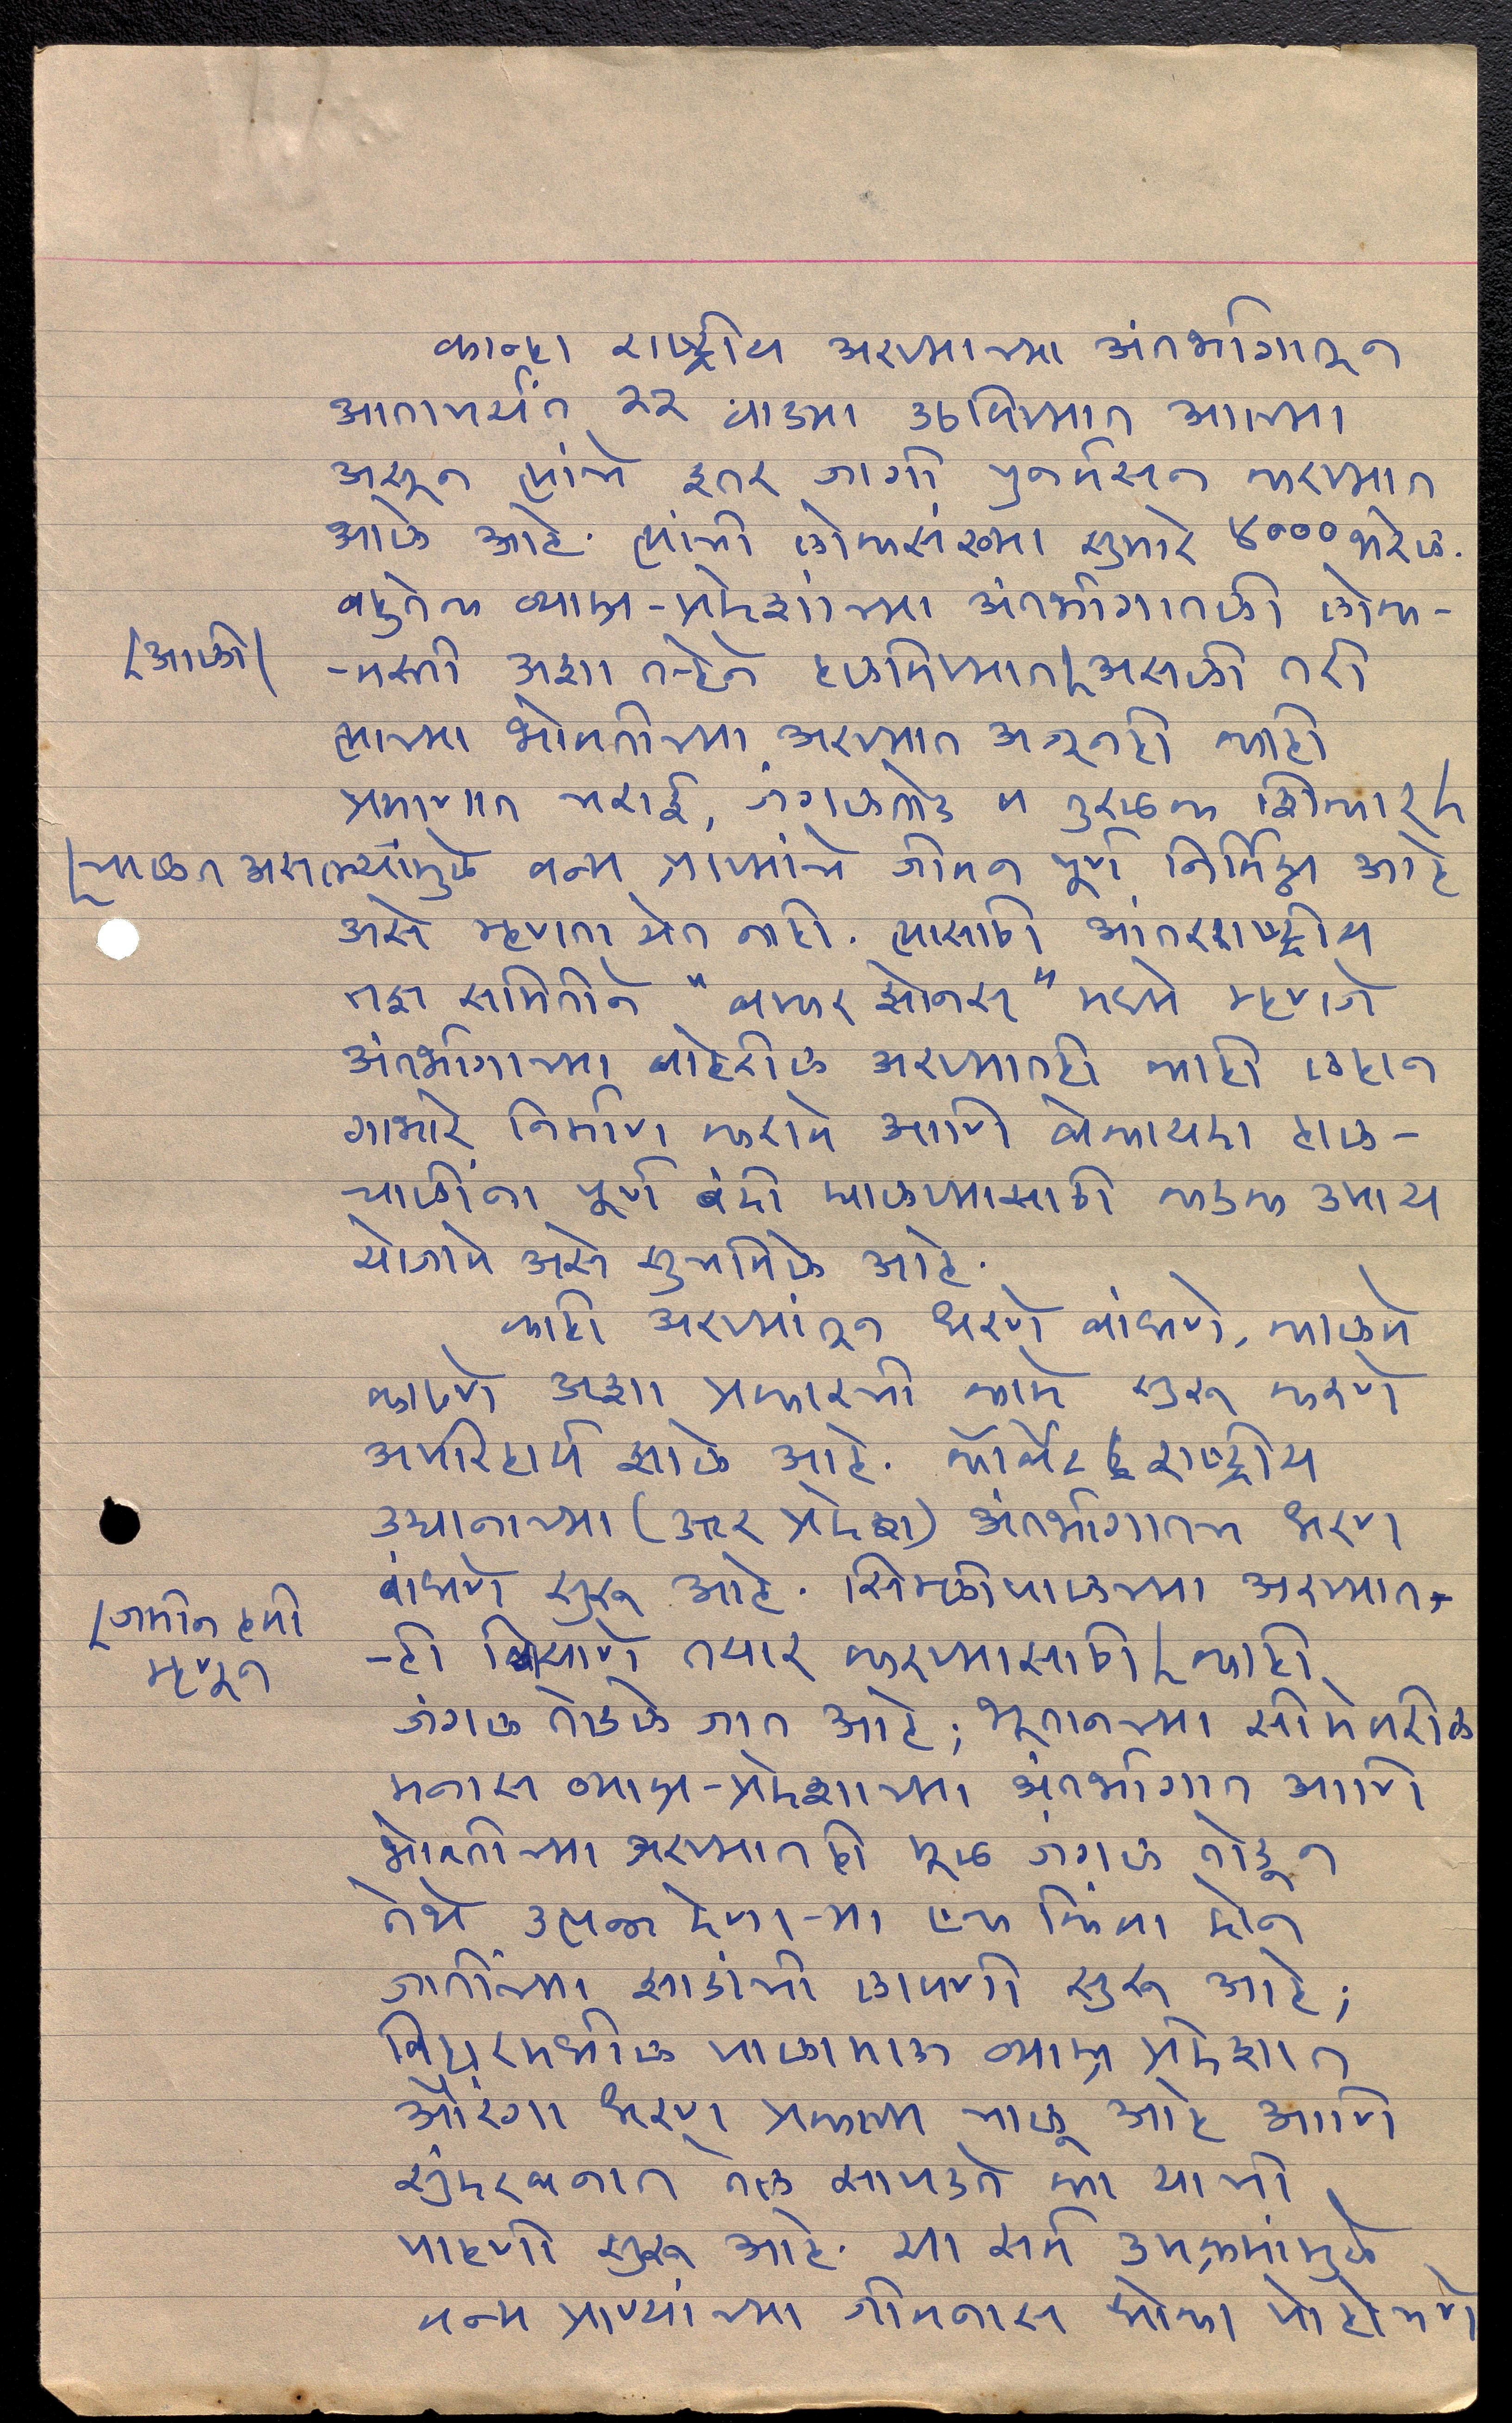 कान्हा राष्ट्रीय अरण्याच्या अंतर्भागातून
आतापर्यंत २२ वाड्या उठविण्यात आल्या
असून त्यांचे इतर जागी पुनर्वसन करण्यात
आले आहे. त्यांची लोकसंख्या सुमारे ४००० भरेल.
बहुतेक व्याघ्र-प्रदेशांच्या अंतर्भागातली लोक-
[आली]
-वस्ती अशा तऱ्हेने हलविण्यात असली तरी
त्याच्या भोवतीच्या अरण्यात अजूनही काही
प्रमाणात चराई, जंगलतोड व तुरळक शिकार
चालत असल्यामुळे वन्य प्राण्यांचे जीवन पूर्ण निर्विघ्न आहे
असे म्हणता येत नाही. त्यासाठी आंतरराष्ट्रीय
तज्ञ समितीने "बफर झोनस" मध्ये म्हणजे
अंतर्भागाच्या बाहेरील अरण्यातही काही लहान
गाभारे निर्माण करावे आणि बेकायदा हाल-
चालींना पूर्ण बंदी घालण्यासाठी कडक उपाय
योजावे असे सुचविले आहे.
काही अरण्यांतून धरणे बांधणे, कालवे
काढणे अशा प्रकारची कामे सुरू करणे
अपरिहार्य झाले आहे. कॉर्बेट राष्ट्रीय
उद्यानाच्या (उत्तर प्रदेश) अंतर्भागातच धरण
बांधणे सुरू आहे. सिमलीपालच्या अरण्यात-
[जमीन हवी
म्हणून
-ही बियाणे तयार करण्यासाठी काही
जंगल तोडले जात आहे; भूतानच्या सीमेवरील
मनास व्याघ्र-प्रदेशाच्या अंतर्भागात आणि
भोवतीच्या अरण्यातही मूळ जंगल तोडून
तेथे उत्पन्न देणाऱ्या एक किंवा दोन
जातींच्या झाडांची लावणी सुरू आहे;
बिहारमधील पालामाऊ व्याघ्र प्रदेशात
औरंगा धरण प्रकल्प चालू आहे आणि
सुंदरबनात तेल सापडते का याची
पाहणी सुरू आहे. या सर्व उपक्रमांमुळे
वन्य प्राण्यांच्या जीवनास धोका पोहोचणे